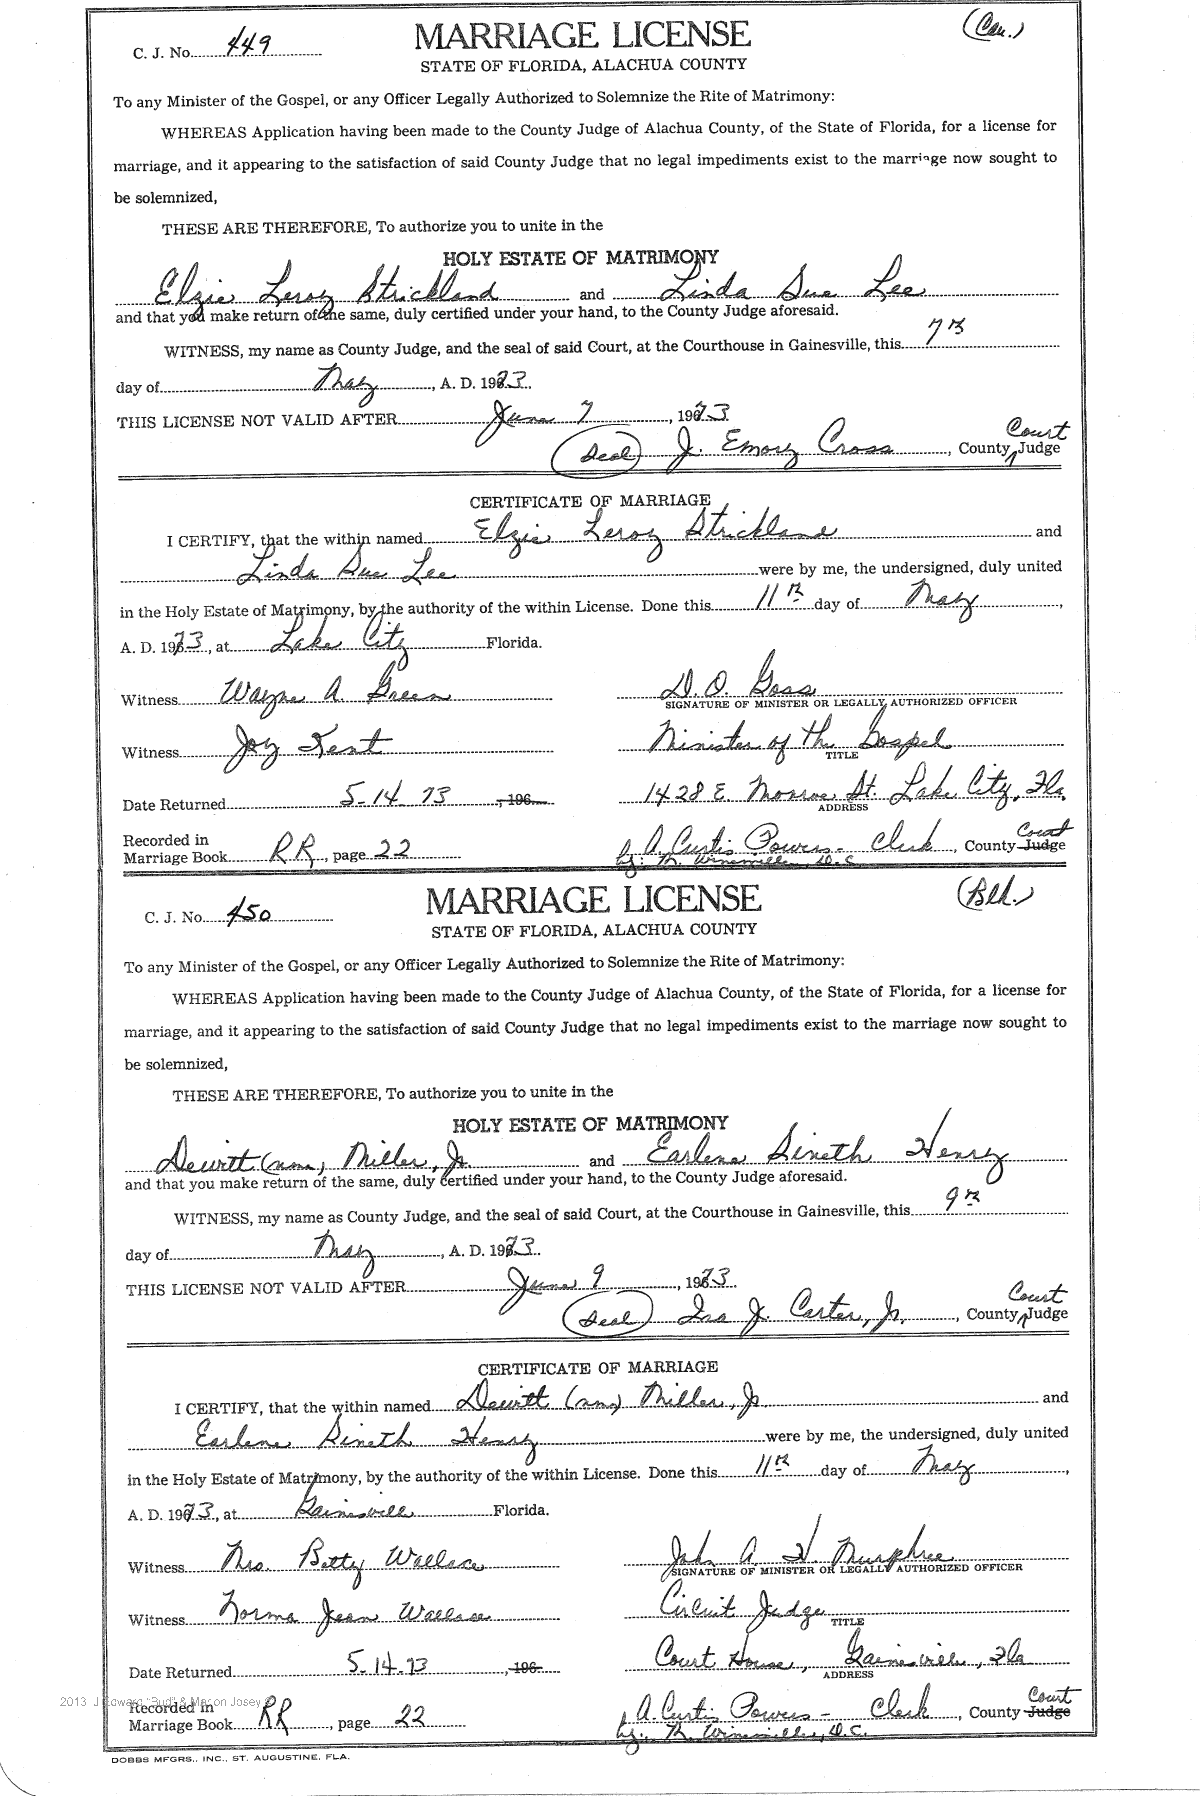 C. J. No. 449 MARRIAGE LICENSE (Cau.)
STATE OF FLORIDA, ALACHUA COUNTY
To any Minister of the Gospel, or any Officer Legally Authorized to Solemnize the Rite of Matrimony:
WHEREAS Application having been made to the County Judge of Alachua County, of the State of Florida, for a license for
marriage, and it appearing to the satisfaction of said County Judge that no legal impediments exist to the marriage now sought to
be solemnized,
THESE ARE THEREFORE, To authorize you to unite in the
HOLY ESTATE OF MATRIMONY
Elzie Leroy Strickland and Linda Sue Lee
and that you make return of the same, duly certified under your hand, to the County Judge aforesaid.
WITNESS, my name as County Judge, and the seal of said Court, at the Courthouse in Gainesville, this 7th
day of May, A. D. 1973.
THIS LICENSE NOT VALID AFTER June 7, 1973
(Seal) J. Emory Cross, County Court Judge
CERTIFICATE OF MARRIAGE
I CERTIFY, that the within named Elzie Leroy Strickland and
Linda Sue Lee were by me, the undersigned, duly united
in the Holy Estate of Matrimony, by the authority of the within License. Done this 11th day of May,
A. D. 1973, at Lake City Florida.
Witness Wayne A. Green D. O. Goss
SIGNATURE OF MINISTER OR LEGALLY AUTHORIZED OFFICER
Witness Joy Kent Minister of the Gospel
TITLE
Date Returned 5-14-73, 196 1428 E. Monroe St. Lake City, Fla.
ADDRESS
Recorded in
Marriage Book RR, page 22 A. Curtis Powers - Clerk, County Court Judge
by: M. Winemiller, D.C.
C. J. No. 450 MARRIAGE LICENSE (Blk.)
STATE OF FLORIDA, ALACHUA COUNTY
To any Minister of the Gospel, or any Officer Legally Authorized to Solemnize the Rite of Matrimony:
WHEREAS Application having been made to the County Judge of Alachua County, of the State of Florida, for a license for
marriage, and it appearing to the satisfaction of said County Judge that no legal impediments exist to the marriage now sought to
be solemnized,
THESE ARE THEREFORE, To authorize you to unite in the
HOLY ESTATE OF MATRIMONY
Dewitt (nmn) Miller, Jr. and Earlene Sineth Henry
and that you make return of the same, duly certified under your hand, to the County Judge aforesaid.
WITNESS, my name as County Judge, and the seal of said Court, at the Courthouse in Gainesville, this 9th
day of May, A. D. 1973.
THIS LICENSE NOT VALID AFTER June 9, 1973
(Seal) Ira J. Carter, Jr., County Court Judge
CERTIFICATE OF MARRIAGE
I CERTIFY, that the within named Dewitt (nmn) Miller, Jr and
Earlene Sineth Henry were by me, the undersigned, duly united
in the Holy Estate of Matrimony, by the authority of the within License. Done this 11th day of May,
A. D. 1973, at Gainesville Florida.
Witness Mrs. Betty Wallace John A. H. Murphree
SIGNATURE OF MINISTER OR LEGALLY AUTHORIZED OFFICER
Witness Norma Jean Wallace Circuit Judge
TITLE
Date Returned 5-14-73, 196 Court House, Gainesville, Fla
ADDRESS
2013 J Edward "Bud" & Marion Josey
Recorded in
Marriage Book RR, page 22 A. Curtis Powers - Clerk, County Court Judge
by: M. Winemiller, D.C.
DOBBS MFGRS., INC., ST. AUGUSTINE, FLA.